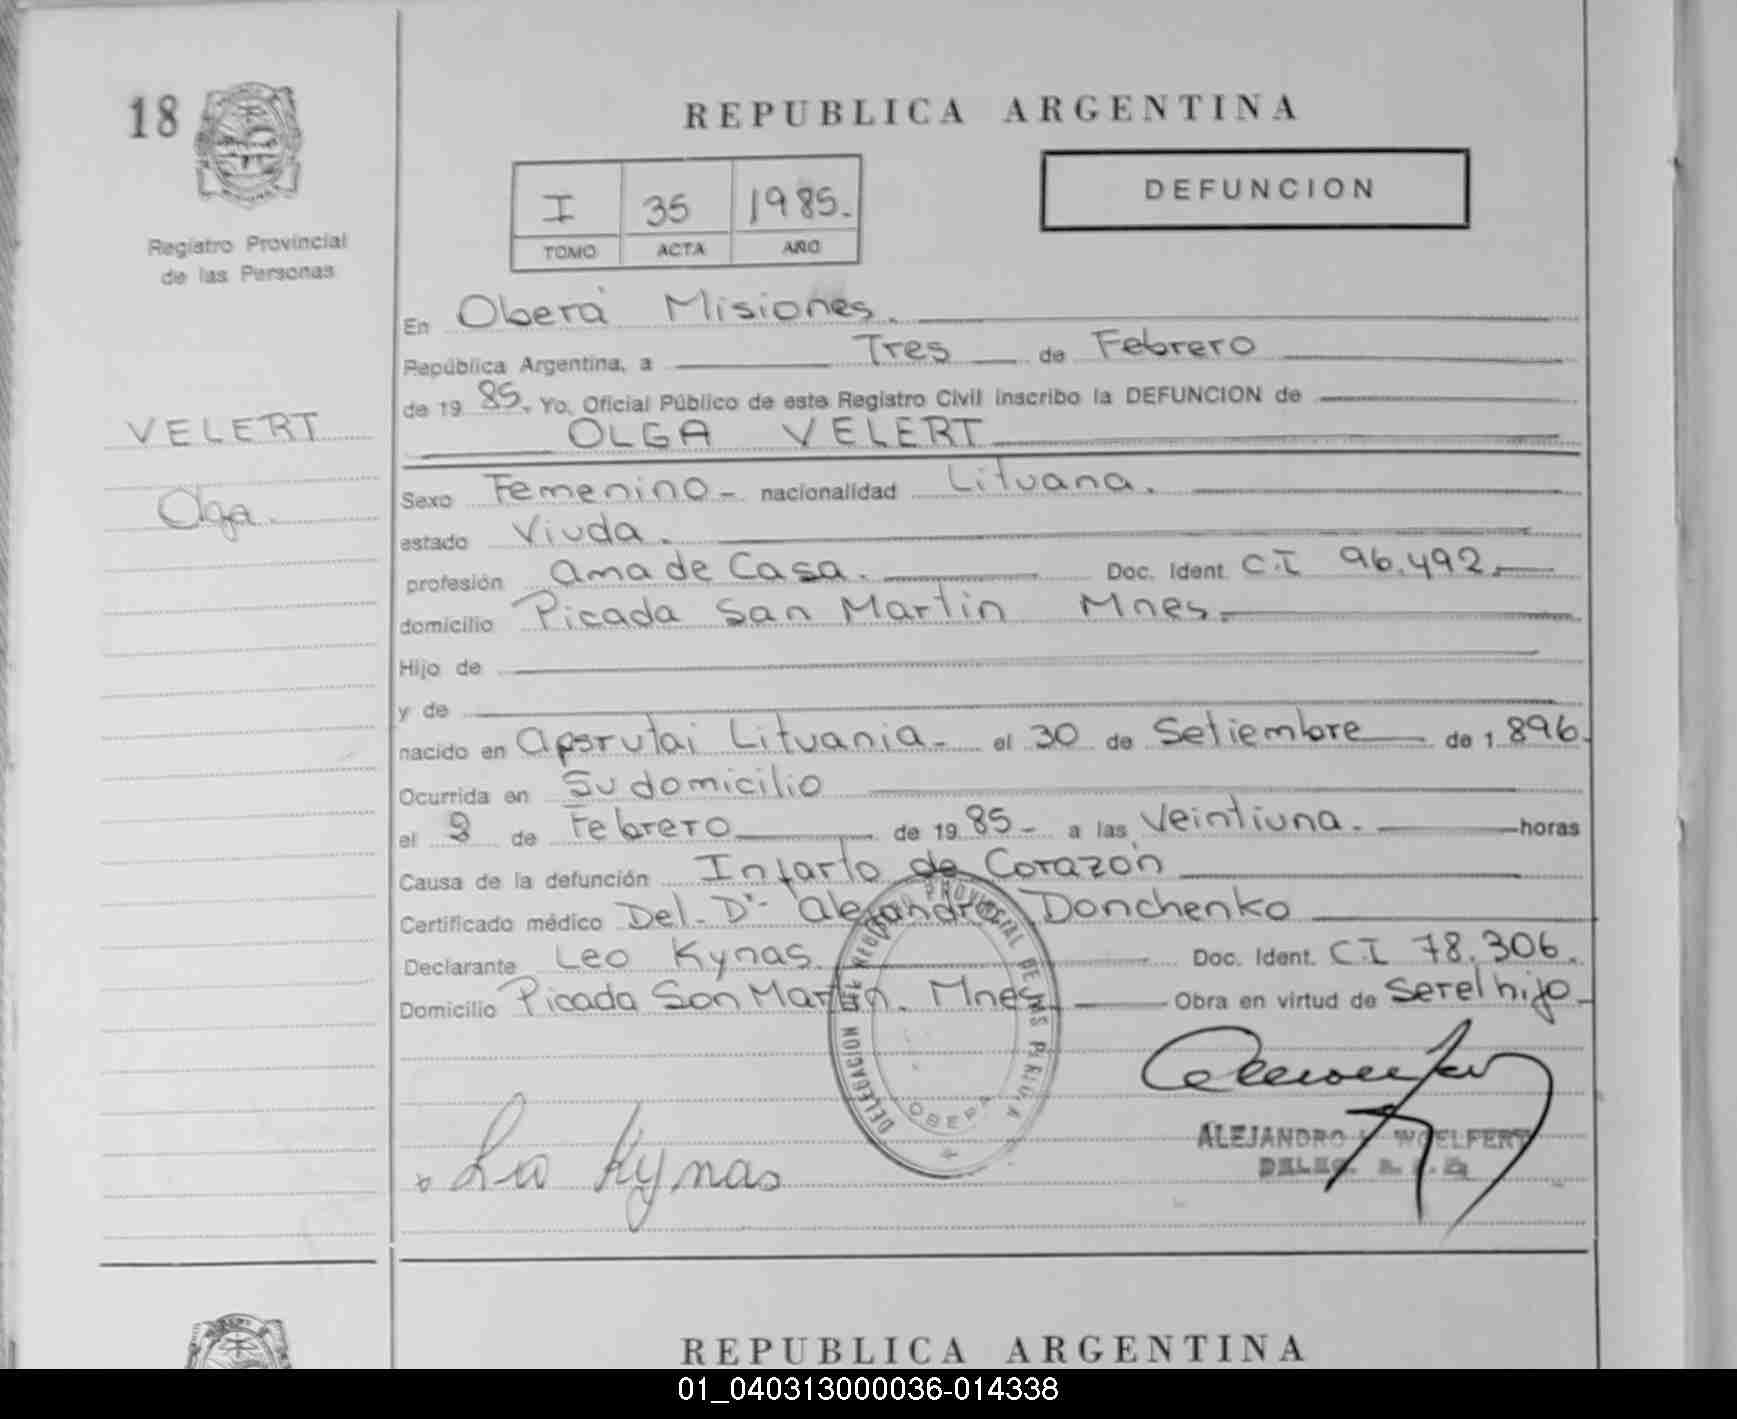 18
REPUBLICA ARGENTINA
I 35 1985.
TOMO ACTA AÑO
DEFUNCION
Registro Provincial
de las Personas
VELERT
Olga.
En Oberá Misiones.
República Argentina, a Tres de Febrero
de 1985. Yo, Oficial Público de este Registro Civil inscribo la DEFUNCION de
OLGA VELERT
Sexo Femenino - nacionalidad Lituana.
estado Viuda.
profesión ama de Casa. Doc. Ident. C.I 96.492.
domicilio Picada San Martin Mnes.
Hijo de
y de
nacido en Apsrutai Lituania - el 30 de Setiembre de 1.896.
Ocurrida en Su domicilio
el de Febrero de 1985 - a las Veintiuna. horas
Causa de la defunción Infarto de Corazón
Certificado médico Del - Dr - Alejandro Donchenko
Declarante Leo Kynas Doc. Ident. C.I 78.306.
Domicilio Picada San Martin. Mnes. Obra en virtud de Ser el hijo -
DELEGACION DEL REGISTRO PROVINCIAL DE LAS PERSONAS
OBERA
Leo Kynas
ALEJANDRO WOELFERT
DELEG.
REPUBLICA ARGENTINA
01_040313000036-014338